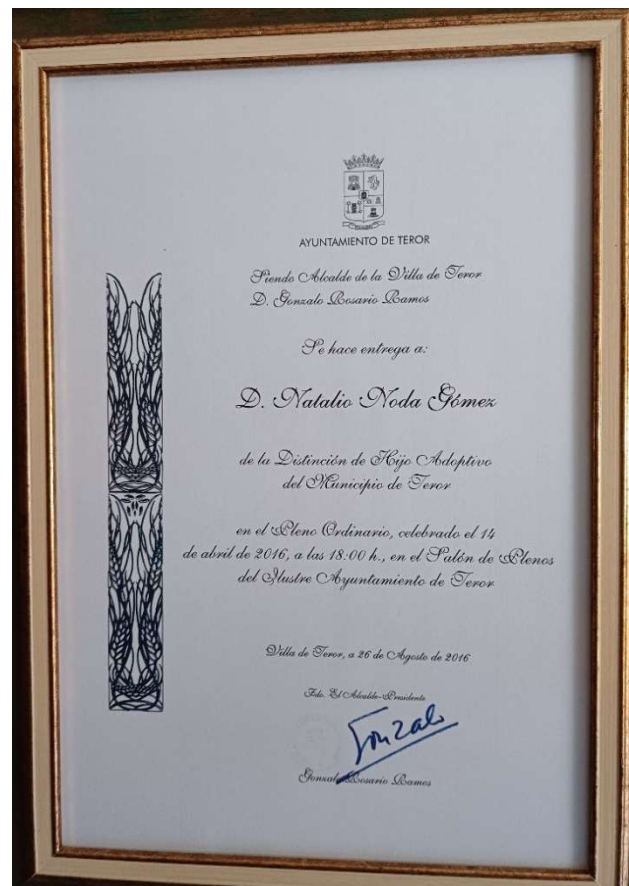 AYUNTAMIENTO DE TEROR
Siendo Alcalde de la Villa de Teror
D. Gonzalo Rosario Ramos
Se hace entrega a:
D. Natalio Noda Gómez
de la Distinción de Hijo Adoptivo
del Municipio de Teror
en el Pleno Ordinario, celebrado el 14
de abril de 2016, a las 18:00 h., en el Salón de Plenos
del Ilustre Ayuntamiento de Teror
Villa de Teror, a 26 de Agosto de 2016
Fdo. El Alcalde-Presidente
Gonzalo
Gonzalo Rosario Ramos